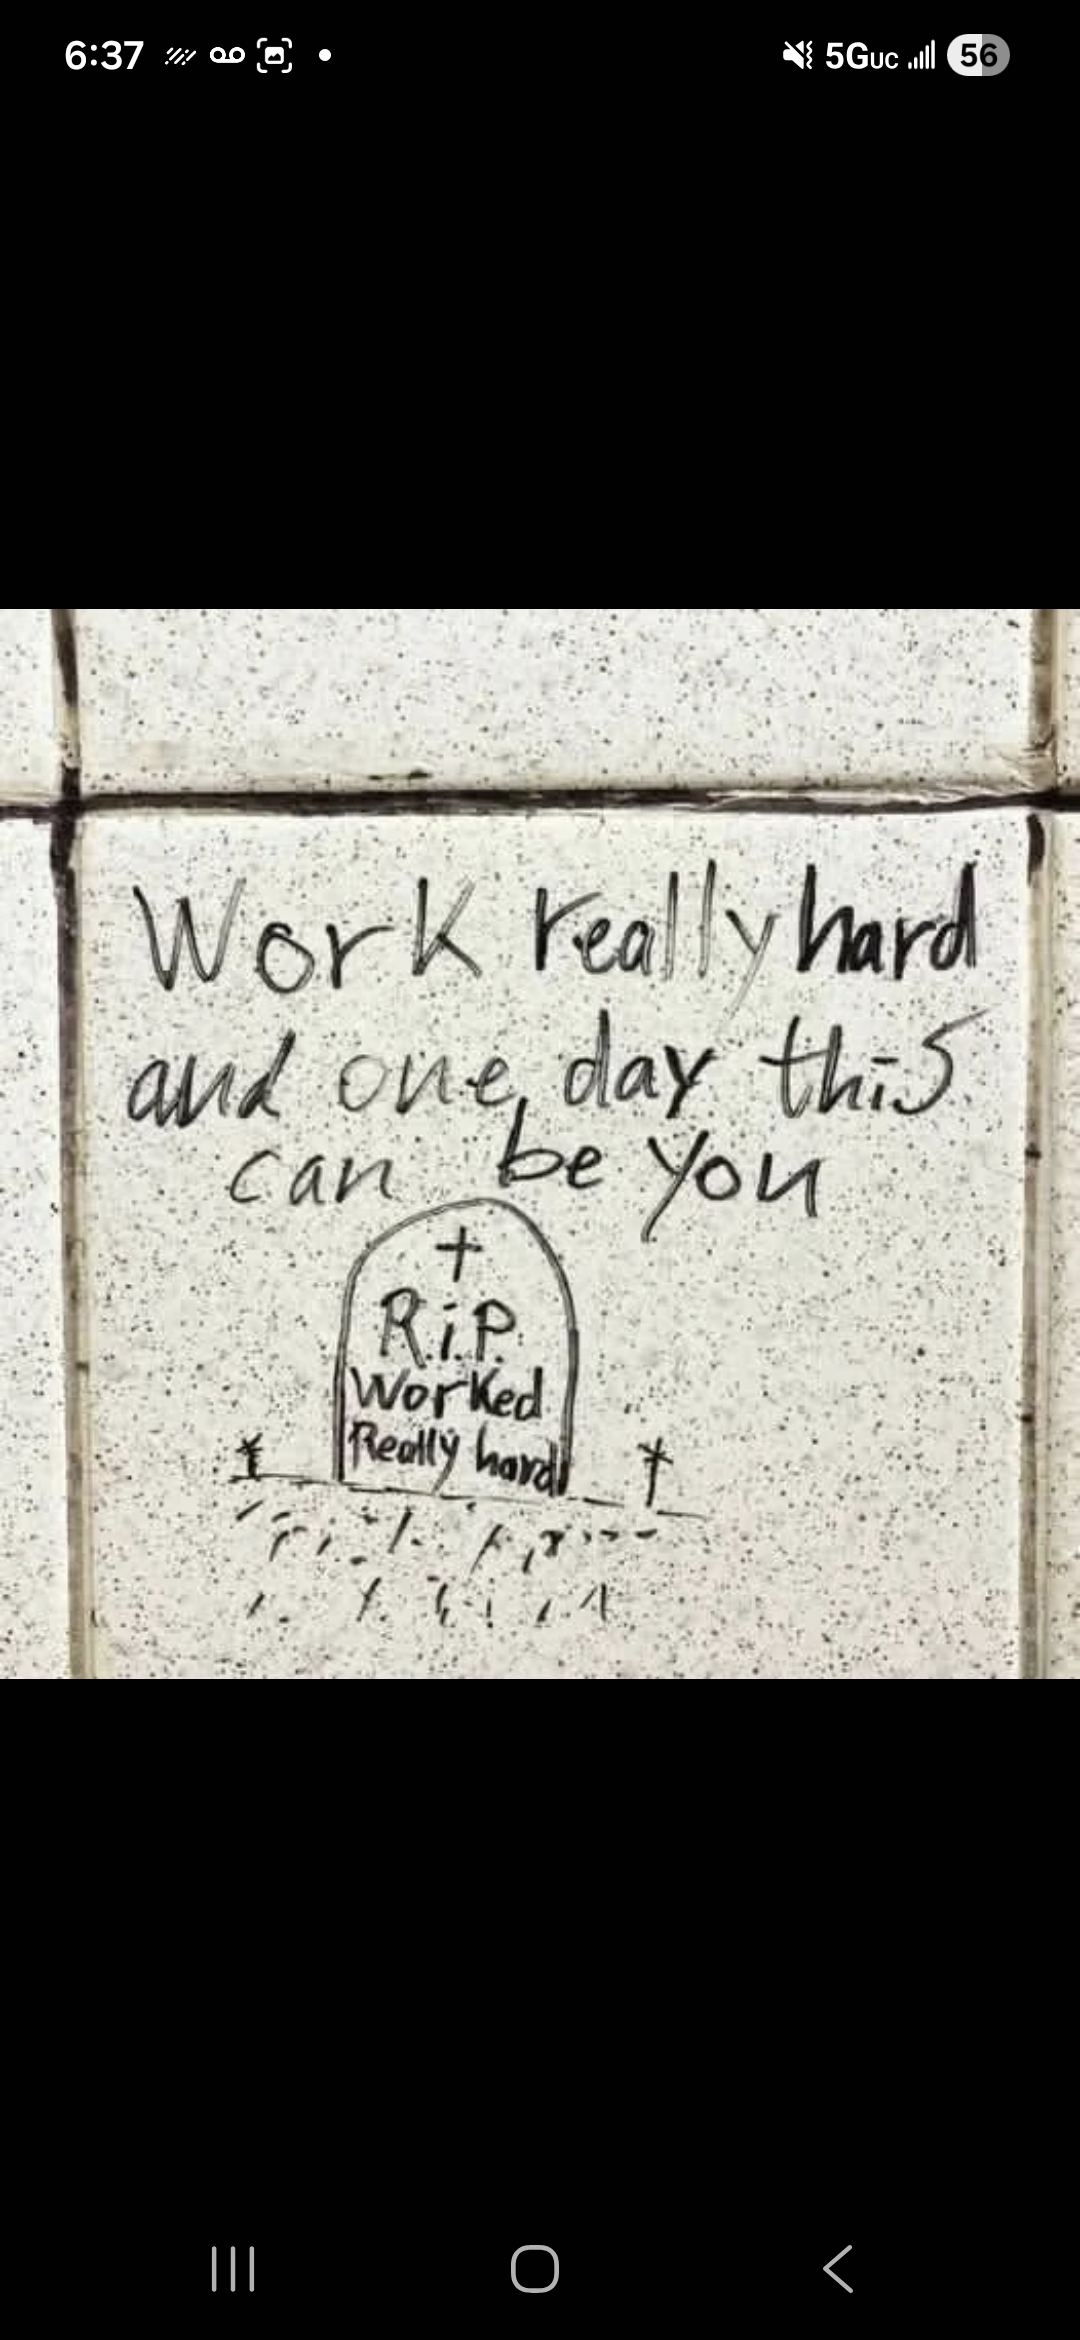 6:37
5GUC 56
Work really hard
and one day this
can be you
R.i.P.
Worked
Really hard